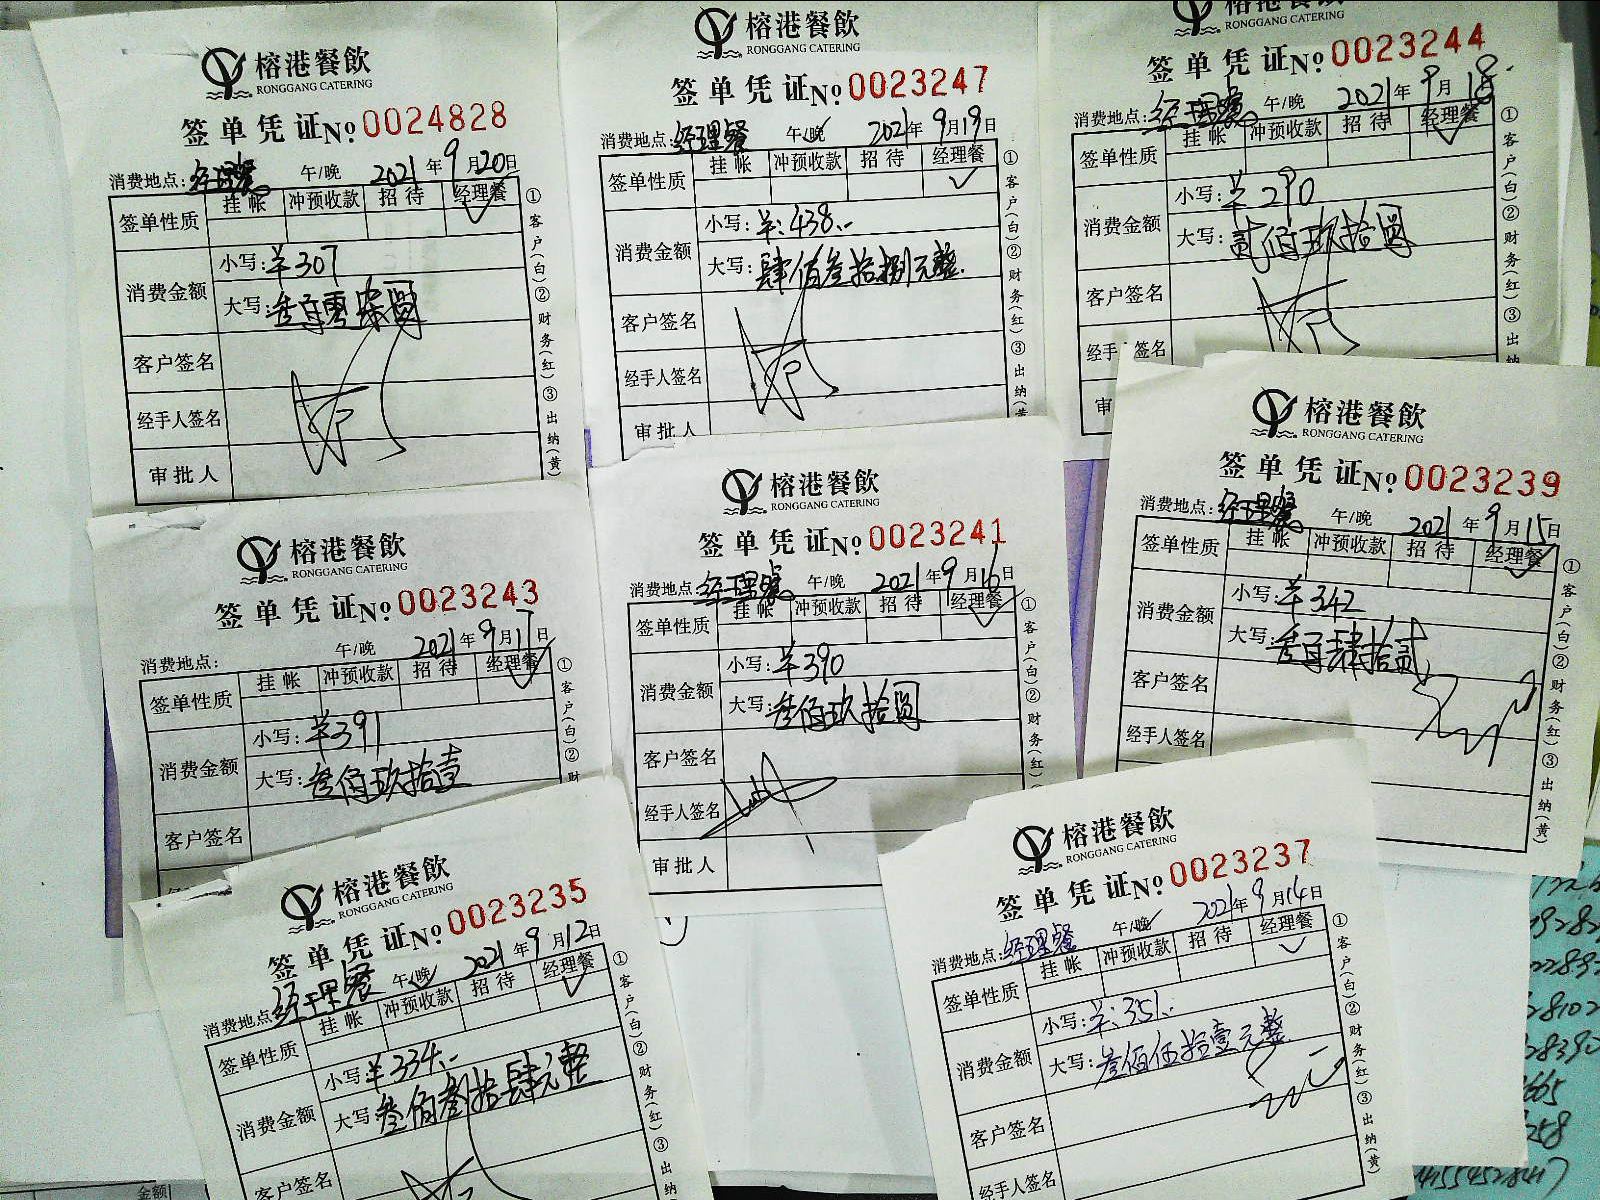 榕港餐飲
RONGGANG CATERING
签单凭证№ 0024828
消费地点: 经理餐 午/晚 2021年9月20日
签单性质 挂帐 冲预收款 招待 经理餐
消费金额 小写: ¥307
大写: 叁百零柒圆
客户签名
经手人签名
审批人
①客户(白)②财务(红)③出纳(黄)
榕港餐飲
RONGGANG CATERING
签单凭证№ 0023247
消费地点: 经理餐 午/晚 2021年9月19日
签单性质 挂帐 冲预收款 招待 经理餐
消费金额 小写: ¥:438.-
大写: 肆佰叁拾捌元整
客户签名
经手人签名
审批人
①客户(白)②财务(红)③出纳(黄
榕港餐飲
RONGGANG CATERING
签单凭证№ 0023244
消费地点: 经理餐 午/晚 2021年9月18
签单性质 挂帐 冲预收款 招待 经理餐
消费金额 小写: ¥290
大写: 贰佰玖拾圆
客户签名
经手 签名
审
①客户(白)②财务(红)③出纳
榕港餐飲
RONGGANG CATERING
签单凭证№ 0023243
消费地点: 午/晚 2021年9月17日
签单性质 挂帐 冲预收款 招待 经理餐
消费金额 小写: ¥391
大写: 叁佰玖拾壹
客户签名
①客户(白)②财
榕港餐飲
RONGGANG CATERING
签单凭证№ 0023241
消费地点: 经理餐 午/晚 2021年9月16日
签单性质 挂帐 冲预收款 招待 经理餐
消费金额 小写: ¥390
大写: 叁佰玖拾圆
客户签名
经手人签名
审批人
①客户(白)②财务(红)
榕港餐飲
RONGGANG CATERING
签单凭证№ 0023239
消费地点: 经理餐 午/晚 2021年9月15日
签单性质 挂帐 冲预收款 招待 经理餐
消费金额 小写: ¥342
大写: 叁百肆拾贰
客户签名
经手人签名
①客户(白)②财务(红)③出纳(黄)
榕港餐飲
RONGGANG CATERING
签单凭证№ 0023235
消费地点 经理餐 午/晚 2021年9月12日
签单性质 挂帐 冲预收款 招待 经理餐
消费金额 小写: ¥334.-
大写: 叁佰叁拾肆元整
客户签名
①客户(白)②财务(红)③出纳
榕港餐飲
RONGGANG CATERING
签单凭证№ 0023237
消费地点: 经理餐 午/晚 2021年9月14日
签单性质 挂帐 冲预收款 招待 经理餐
消费金额 小写: ¥:351.-
大写: 叁佰伍拾壹元整
客户签名
经手人签名
①客户(白)②财务(红)③出纳(黄)
金额